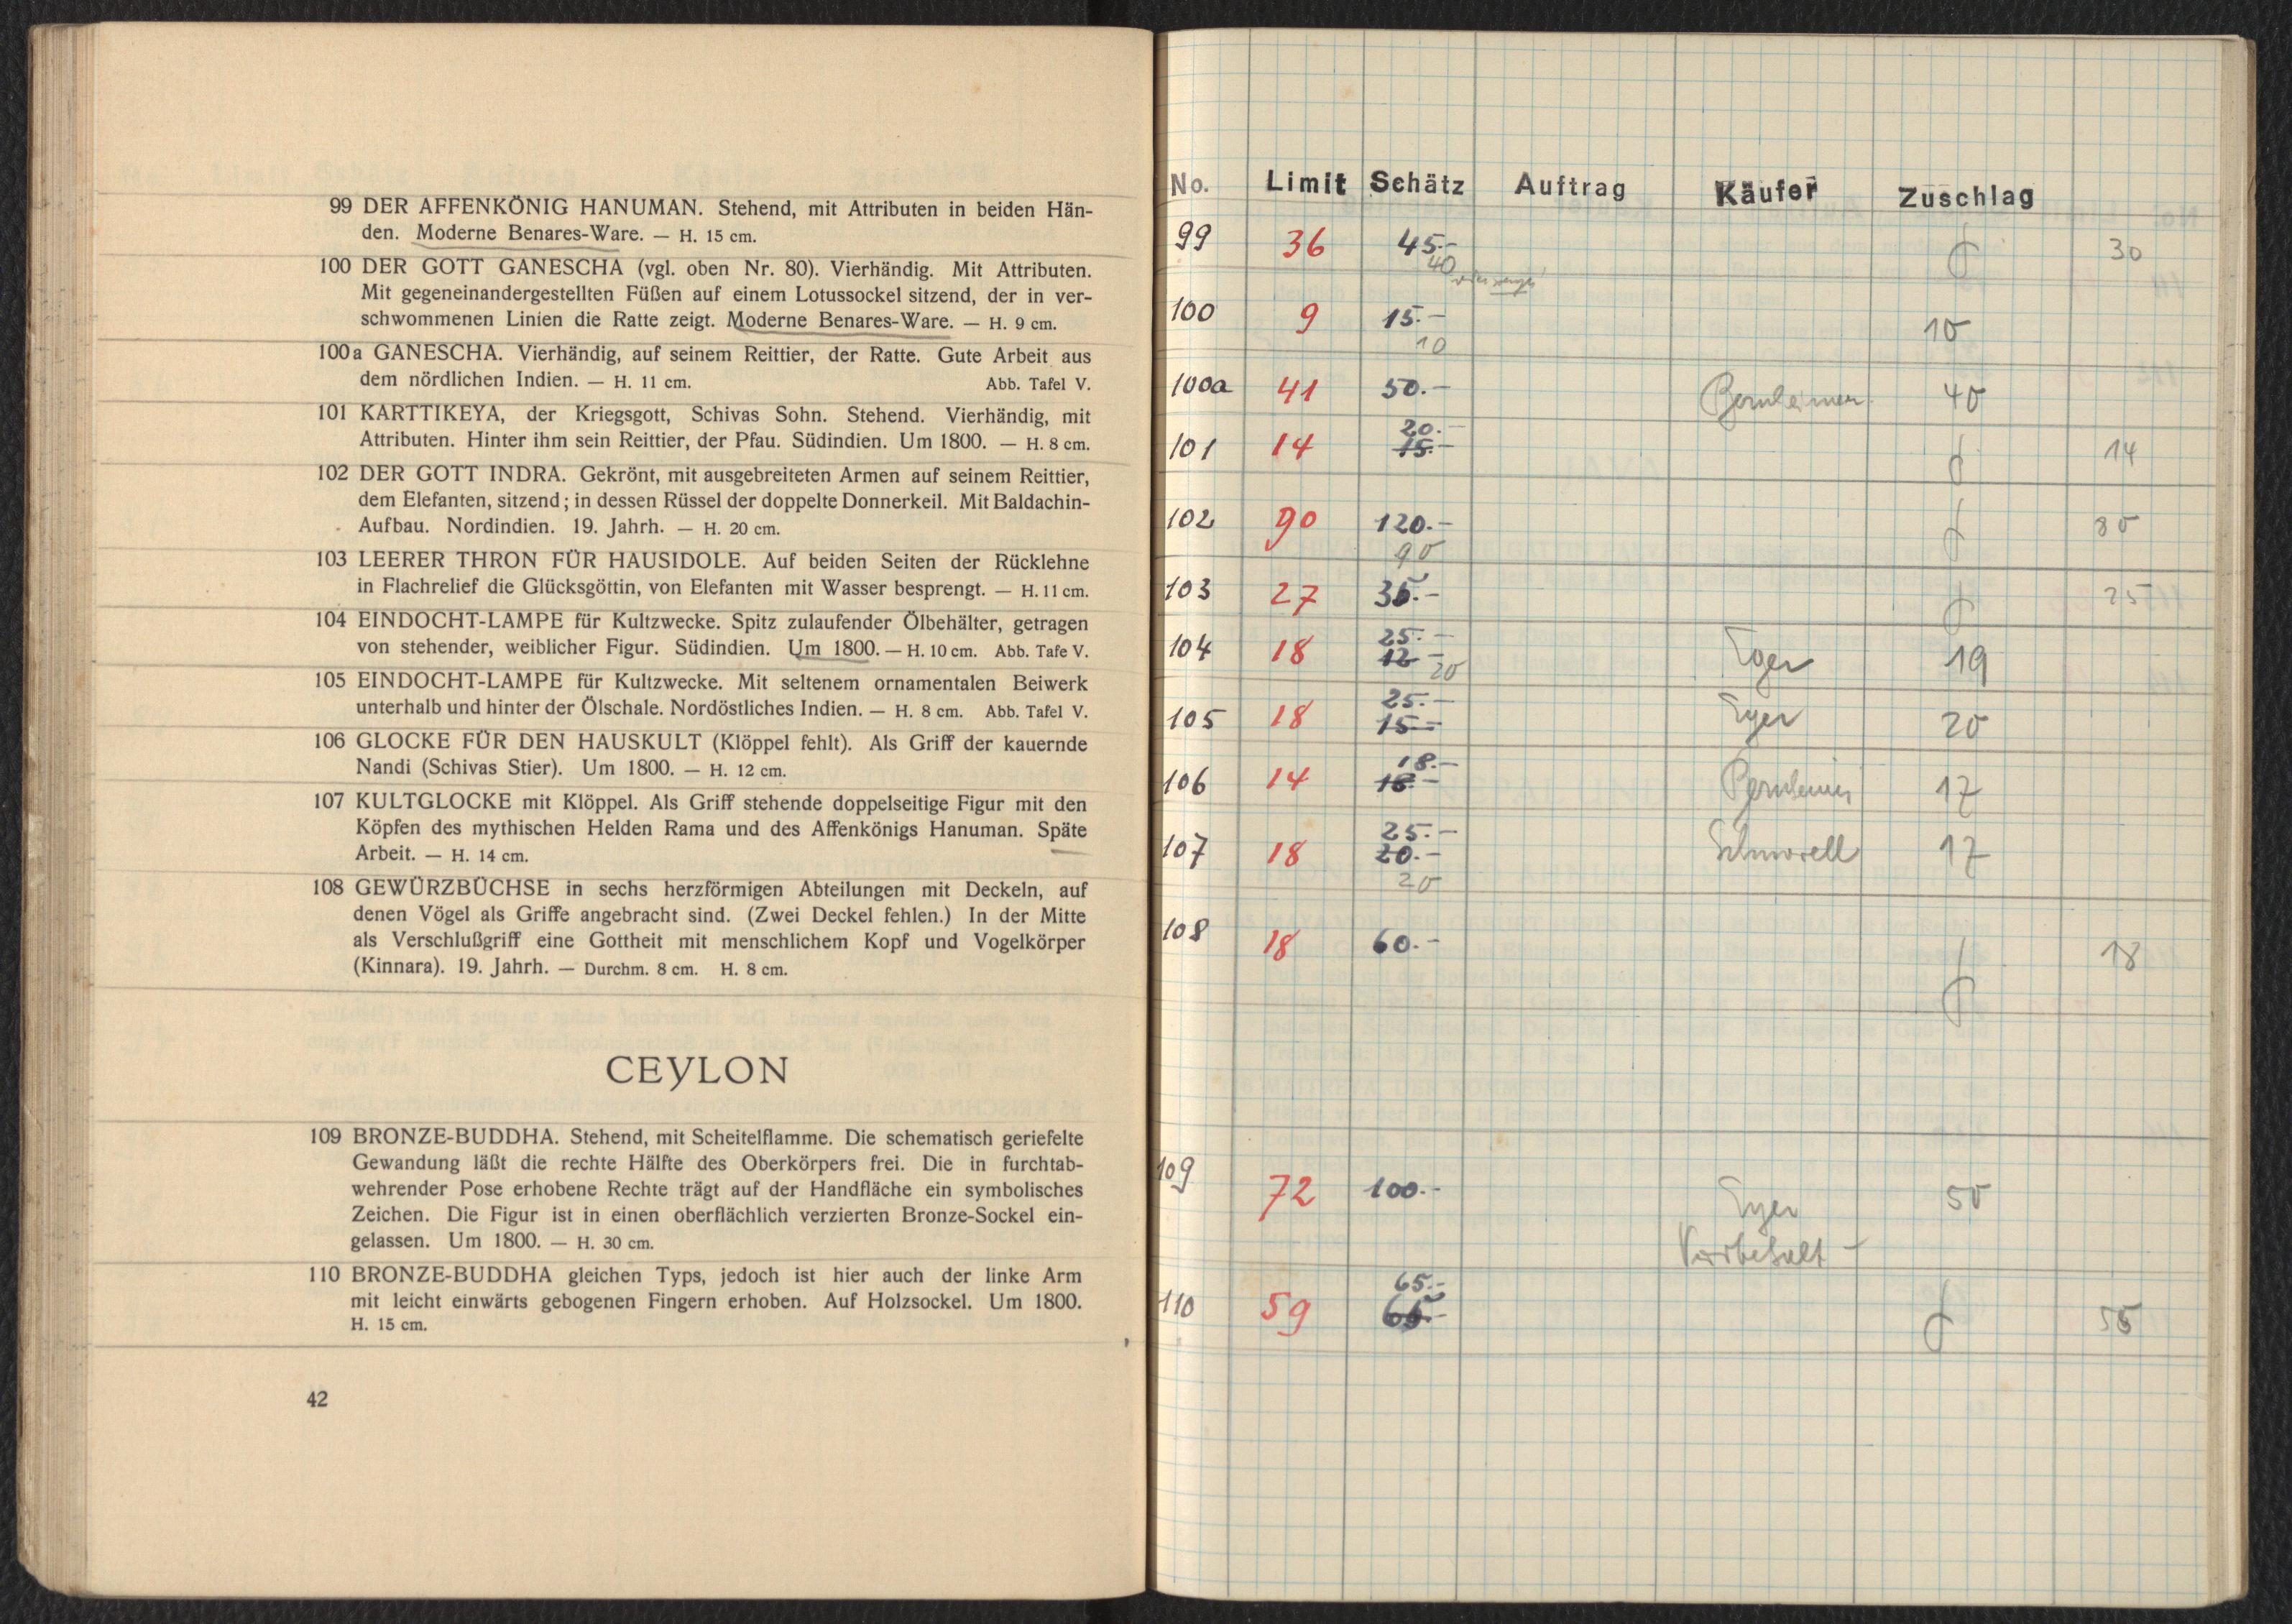 99 DER AFFENKÖNIG HANUMAN. Stehend, mit Attributen in beiden Hän-
den. Moderne Benares-Ware. — H. 15 cm.
100 DER GOTT GANESCHA (vgl. oben Nr. 80). Vierhändig. Mit Attributen.
Mit gegeneinandergestellten Füßen auf einem Lotussockel sitzend, der in ver-
schwommenen Linien die Ratte zeigt. Moderne Benares-Ware. — H. 9 cm.
100a GANESCHA. Vierhändig, auf seinem Reittier, der Ratte. Gute Arbeit aus
dem nördlichen Indien. — H. 11 cm. Abb. Tafel V.
101 KARTTIKEYA, der Kriegsgott, Schivas Sohn. Stehend. Vierhändig, mit
Attributen. Hinter ihm sein Reittier, der Pfau. Südindien. Um 1800. — H. 8 cm.
102 DER GOTT INDRA. Gekrönt, mit ausgebreiteten Armen auf seinem Reittier,
dem Elefanten, sitzend; in dessen Rüssel der doppelte Donnerkeil. Mit Baldachin-
Aufbau. Nordindien. 19. Jahrh. — H. 20 cm.
103 LEERER THRON FÜR HAUSIDOLE. Auf beiden Seiten der Rücklehne
in Flachrelief die Glücksgöttin, von Elefanten mit Wasser besprengt. — H. 11 cm.
104 EINDOCHT-LAMPE für Kultzwecke. Spitz zulaufender Ölbehälter, getragen
von stehender, weiblicher Figur. Südindien. Um 1800. — H. 10 cm. Abb. Tafe V.
105 EINDOCHT-LAMPE für Kultzwecke. Mit seltenem ornamentalen Beiwerk
unterhalb und hinter der Ölschale. Nordöstliches Indien. — H. 8 cm. Abb. Tafel V.
106 GLOCKE FÜR DEN HAUSKULT (Klöppel fehlt). Als Griff der kauernde
Nandi (Schivas Stier). Um 1800. — H. 12 cm.
107 KULTGLOCKE mit Klöppel. Als Griff stehende doppelseitige Figur mit den
Köpfen des mythischen Helden Rama und des Affenkönigs Hanuman. Späte
Arbeit. — H. 14 cm.
108 GEWÜRZBÜCHSE in sechs herzförmigen Abteilungen mit Deckeln, auf
denen Vögel als Griffe angebracht sind. (Zwei Deckel fehlen.) In der Mitte
als Verschlußgriff eine Gottheit mit menschlichem Kopf und Vogelkörper
(Kinnara). 19. Jahrh. — Durchm. 8 cm. H. 8 cm.
CEYLON
109 BRONZE-BUDDHA. Stehend, mit Scheitelflamme. Die schematisch geriefelte
Gewandung läßt die rechte Hälfte des Oberkörpers frei. Die in furchtab-
wehrender Pose erhobene Rechte trägt auf der Handfläche ein symbolisches
Zeichen. Die Figur ist in einen oberflächlich verzierten Bronze-Sockel ein-
gelassen. Um 1800. — H. 30 cm.
110 BRONZE-BUDDHA gleichen Typs, jedoch ist hier auch der linke Arm
mit leicht einwärts gebogenen Fingern erhoben. Auf Holzsockel. Um 1800.
H. 15 cm.
42
No. Limit Schätz Auftrag Käufer Zuschlag
99 36 45.- 30
40
100 9 15.- 10
10
100a 41 50.- Bernheimer 40
20.-
101 14 15.- 14
102 90 120.- 80
90
103 27 35.- 25
25.-
104 18 12.- 20 Eger 19
25.-
105 18 15.- Eger 20
18.-
106 14 18.- Bernheimer 17
25.-
107 18 20.- Schmorell 17
20
108 18 60.- 18
109 72 100.- Eger 50
Vorbehalt -
65.-
110 59 55